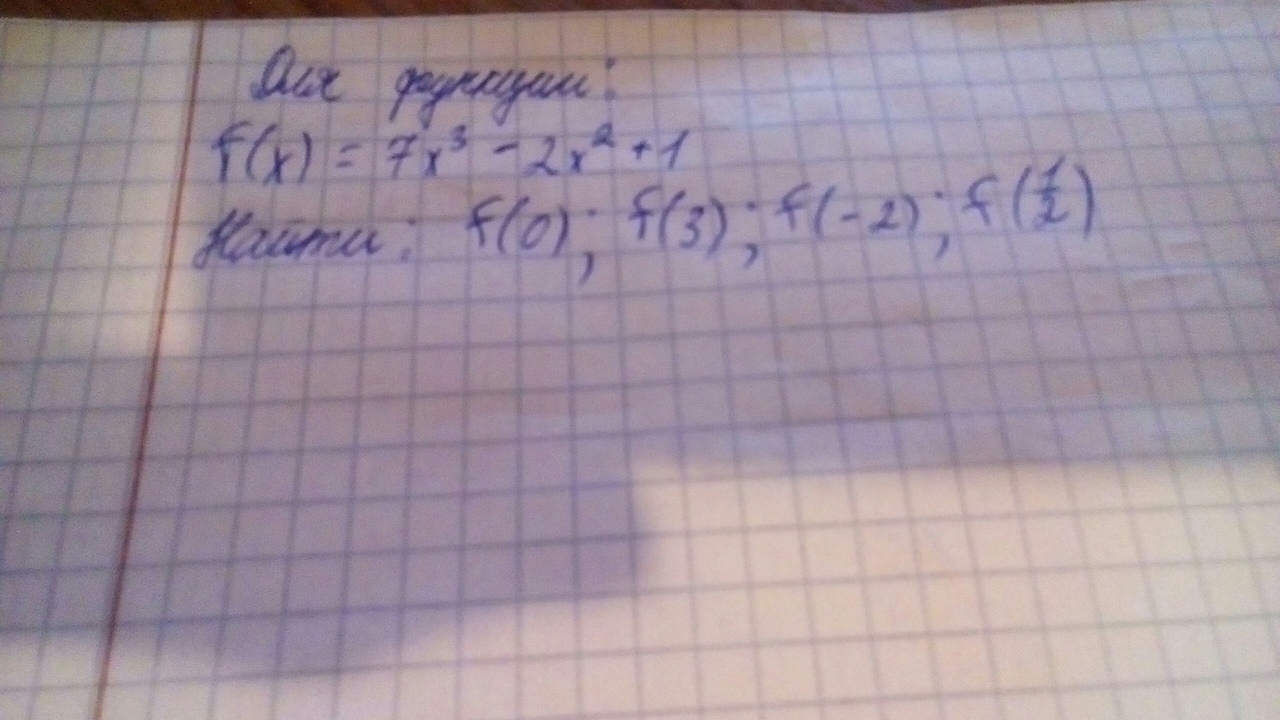 Для функции:
f(x) = 7x³ - 2x² + 1
Найти: f(0); f(3); f(-2); f(1/2)